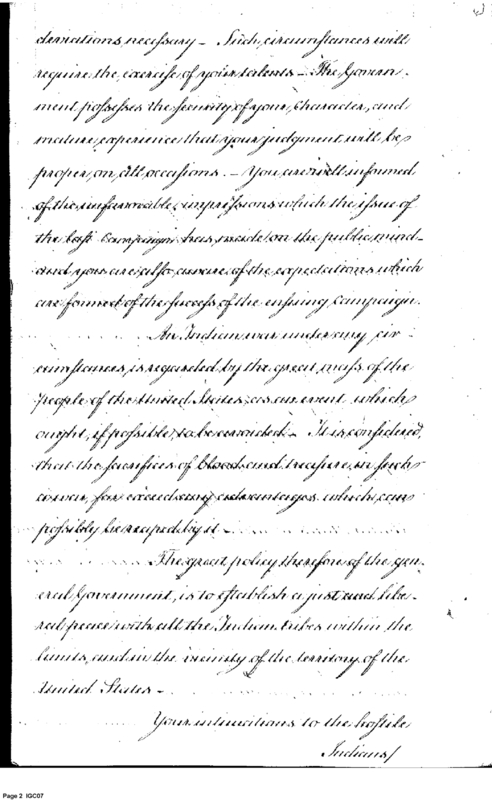 deviations necessary – Such, circumstances will
require the exercise of your talents – The Govern-
ment possesses the security of your, character, and
mature, experience that your judgment will be
proper, on all, occasions. – You are well informed
of the unfavorable, impressions which the issue of
the last campaign has, made, on the public mind –
and you are also aware of the expectations which
are formed of the success of the ensuing campaign.
An Indian war under any cir-
cumstances, is regarded by the great mass of the
people of the United States, as an event, which
ought, if possible, to be avoided – It is considered,
that the sacrifices of blood and treasure, in such
a war, far exceed any advantages which, can
possibly be reaped by it –
The great policy therefore of the gen-
eral Government, is to establish a just and libe-
ral peace with all the Indian tribes within the
limits, and in the vicinity of the territory of the
United States –
Your intimations to the hostile
Indians/
Page 2 IGC07